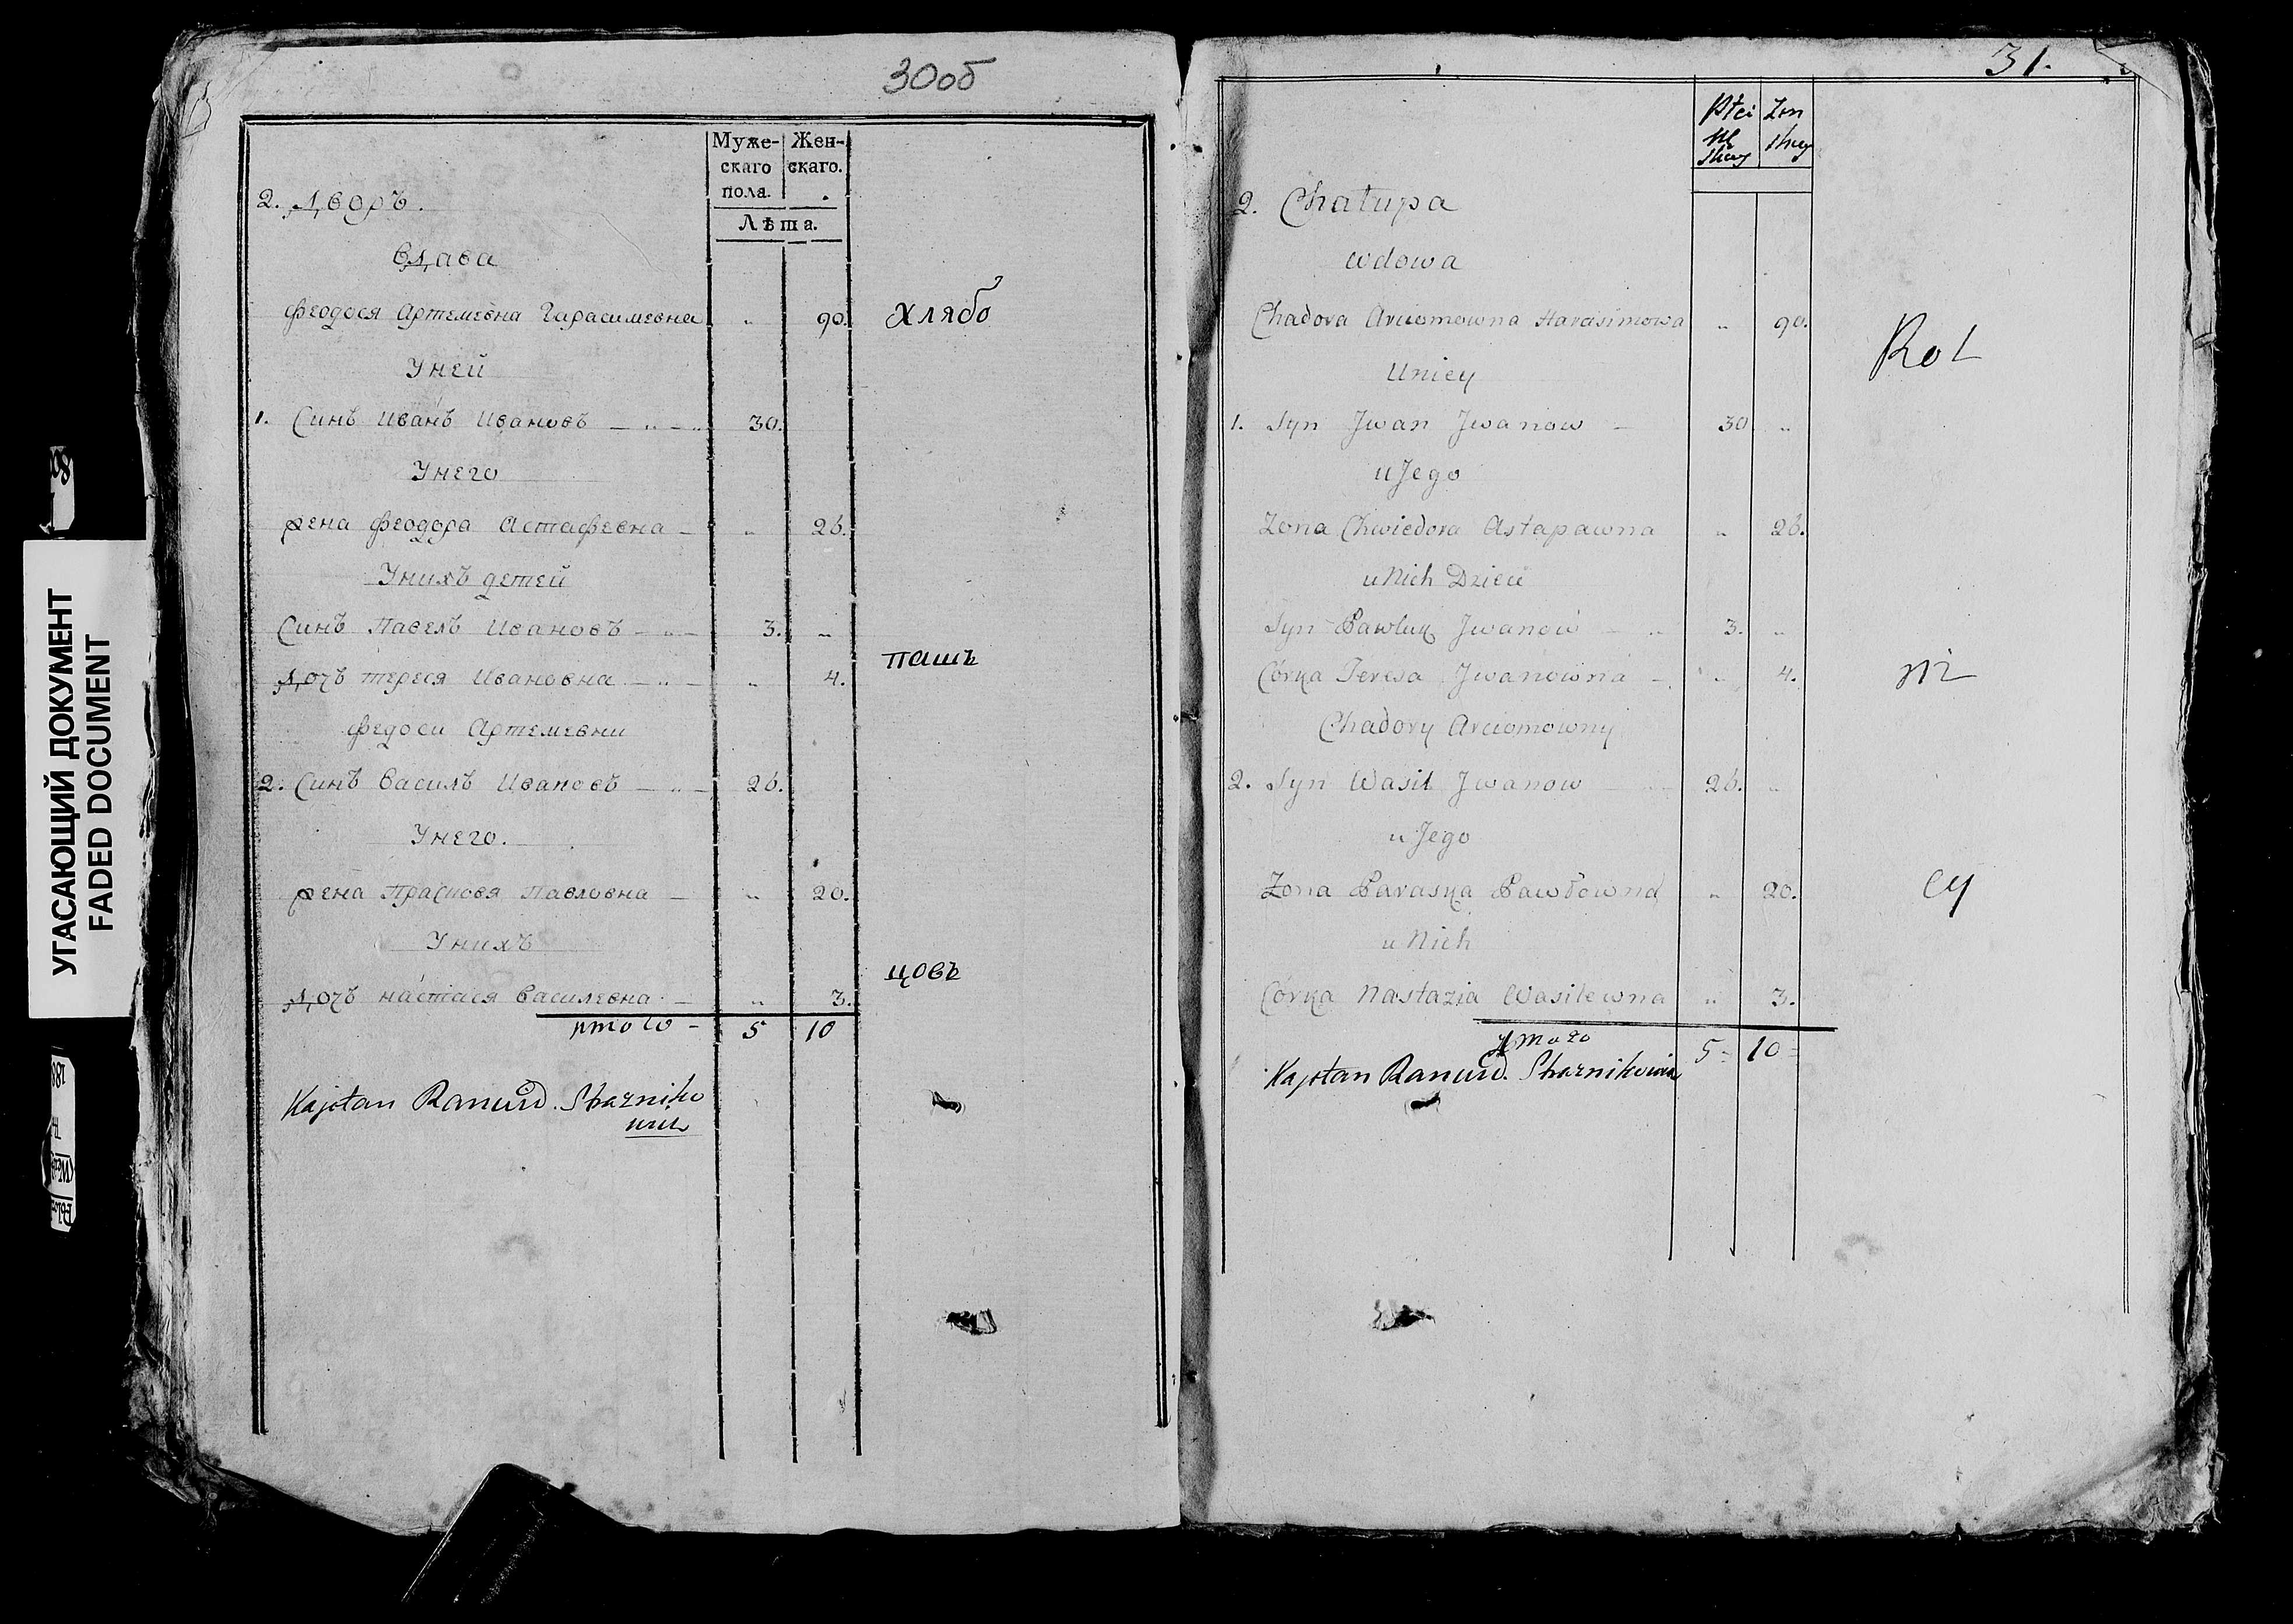 30об
Муже- Жен-
скаго скаго.
пола.
Лѣта.
2. Дворъ.
Вдава
Феодося Артемевна Гарасимевна " 90. Хлябо
Уней
1. Синъ Иванъ Ивановъ 30.
Унего
жена Феодора Астафевна " 26.
Унихъ детей
Синъ Павелъ Ивановъ 3. "
пашъ
Дочъ тереся Ивановна " 4.
Федоси Артемевни
2. Синъ Василъ Ивановъ 26.
Унего.
жена Прасковя Павловна " 20.
Унихъ
цовъ
Дочъ настася Василевна " 3.
итого 5 10
Kajetan
31.
Płci Zen
skiey
2. Chałupa
wdowa
Chadora Arciomowna Harasimowa " 90.
Rol
Uniey
1. Syn Jwan Jwanow 30 "
u Jego
Zona Chwiedora Astapawna " 26.
u Nich Dzieci
Syn Pawluk Jwanow 3. "
Córka Teresa Jwanowna " 4. ni
Chadory Arciomowny
2. Syn Wasil Jwanow 26. "
u Jego
Zona Paraska Pawłowna " 20. cy
u Nich
Córka Nastazia Wasilewna " 3.
Итого 5 10
Kajetan
УГАСАЮЩИЙ ДОКУМЕНТ
FADED DOCUMENT